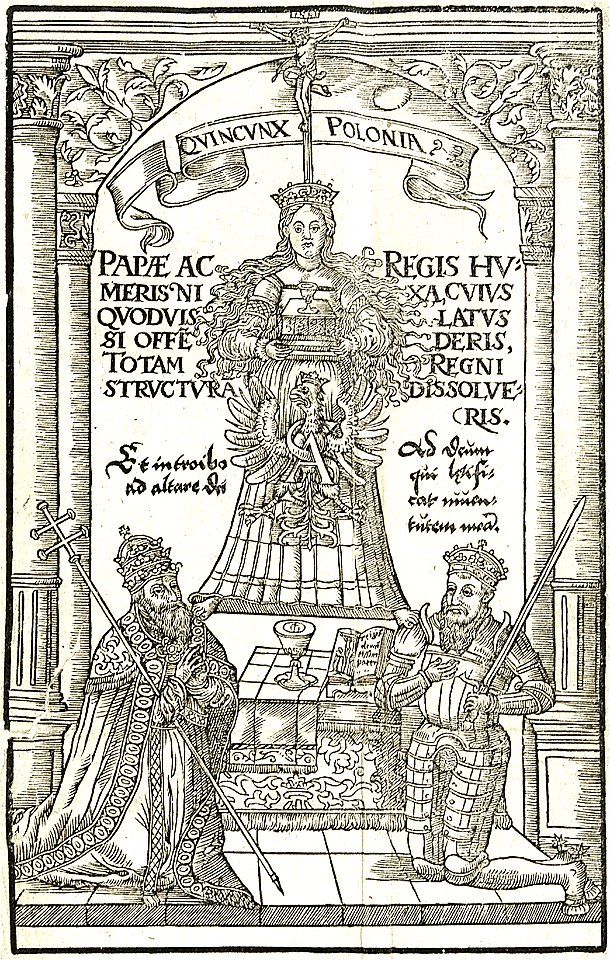 QVINCVNX POLONIA
PAPÆ AC REGIS HV-
MERIS NI XA, CVIVS
QVODVIS LATVS
SI OFFĒ DERIS,
TOTAM REGNI
STRVCTVRA DISSOLVE-
RIS.
Et introibo
ad altare dei
Ad deum
qui letifi-
cat iuuen-
tutem meā.